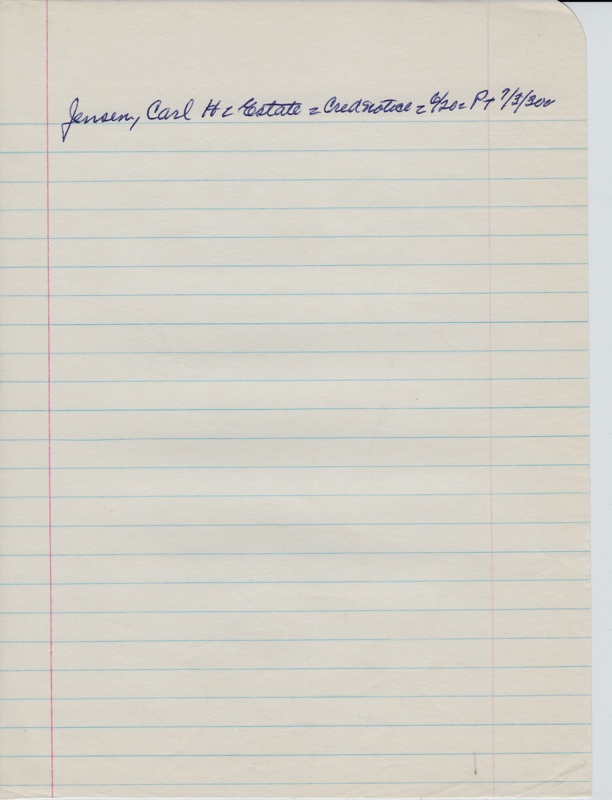 Jensen, Carl H = Estate = Cred notice = 6/20 = P+ 7/3/30